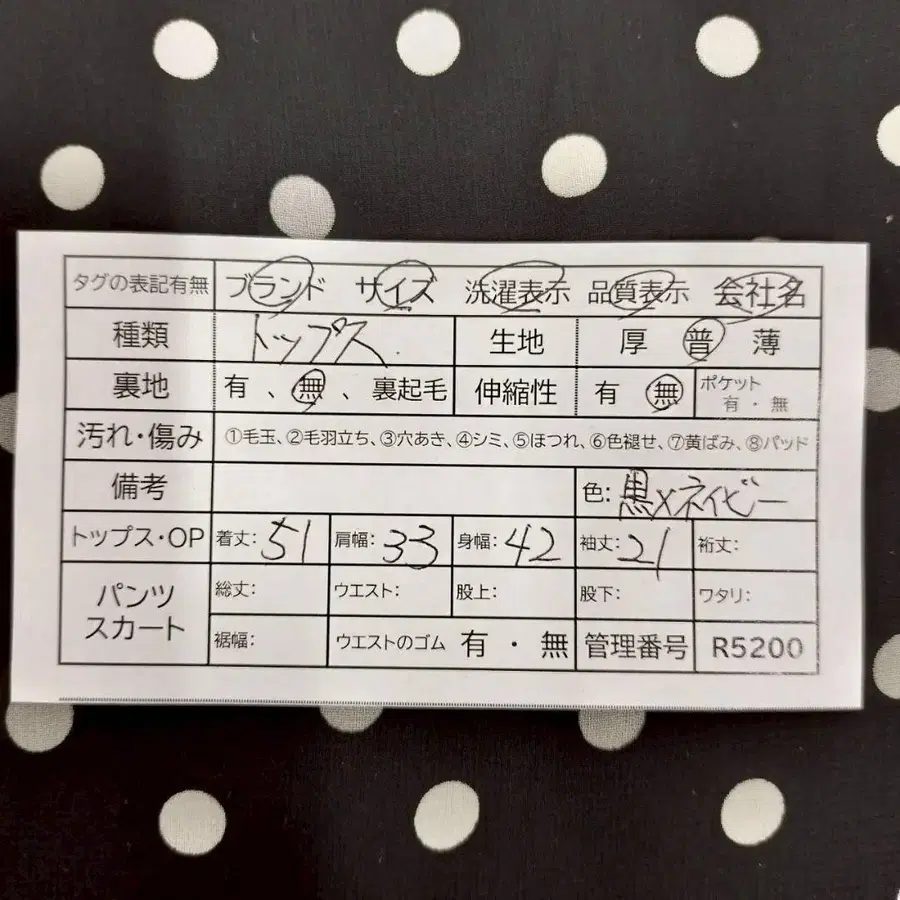 タグの表記有無 ブランド サイズ 洗濯表示 品質表示 会社名
種類 トップス 生地 厚 普 薄
裏地 有 、 無 、 裏起毛 伸縮性 有 無 ポケット 有 ・ 無
汚れ・傷み ①毛玉、②毛羽立ち、③穴あき、④シミ、⑤ほつれ、⑥色褪せ、⑦黄ばみ、⑧パッド
備考 色: 黒×ネイビー
トップス・OP 着丈: 51 肩幅: 33 身幅: 42 袖丈: 21 裄丈:
パンツ スカート 総丈: ウエスト: 股上: 股下: ワタリ:
裾幅: ウエストのゴム 有 ・ 無 管理番号 R5200